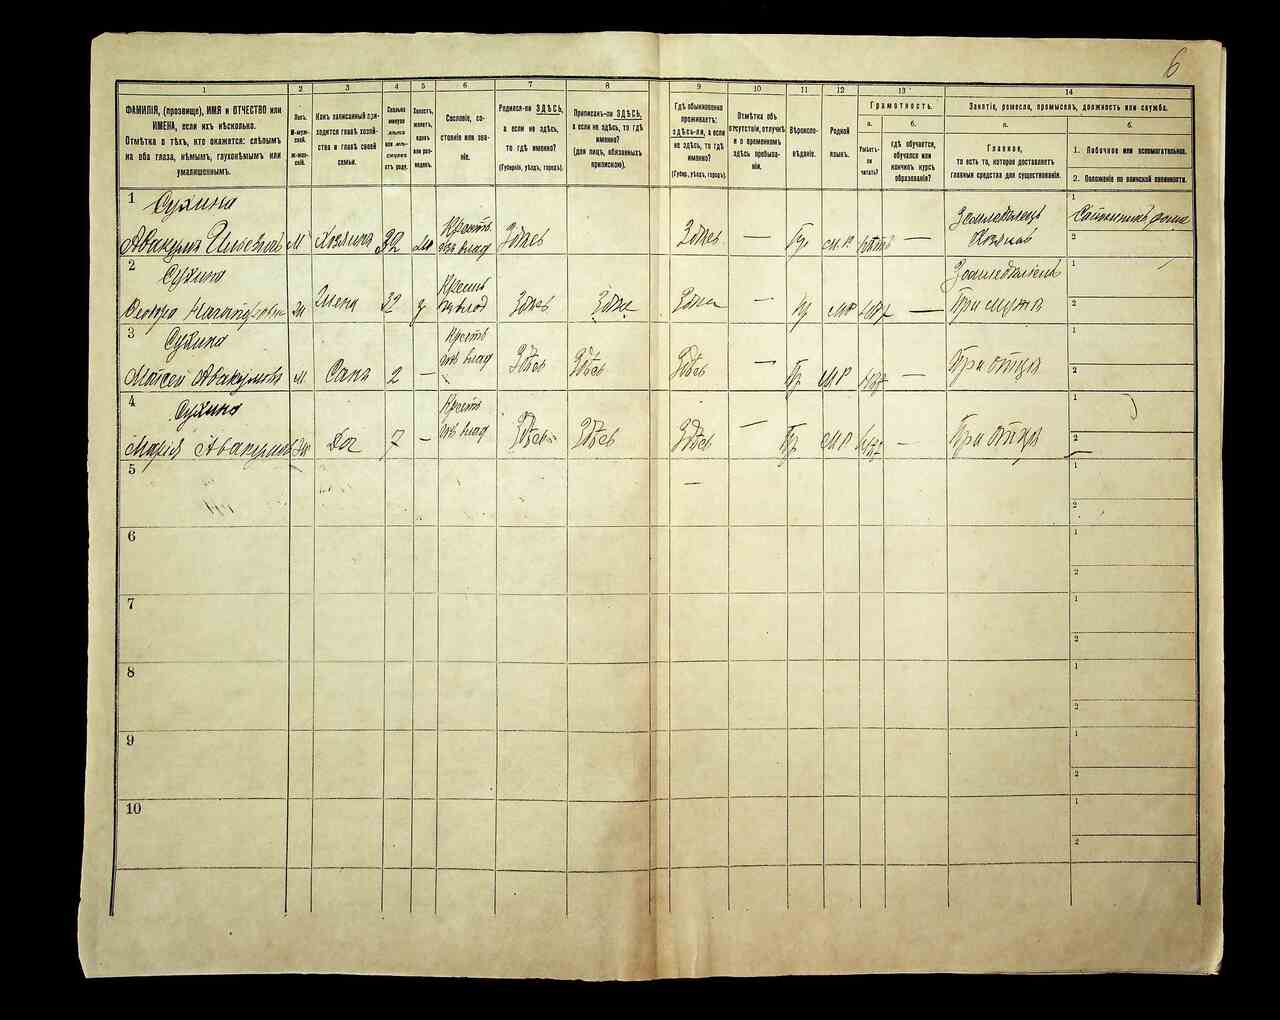 6
1
2
3
4
5
6
7
8
9
10
11
12
13
14
ФАМИЛІЯ, (прозвище), ИМЯ и ОТЧЕСТВО или
ИМЕНА, если ихъ нѣсколько.
Отмѣтка о тѣхъ, кто окажется: слѣпымъ
на оба глаза, нѣмымъ, глухонѣмымъ или
умалишеннымъ.
Полъ.
М-муж-
ской.
Ж-жен-
скій.
Какъ записанный при-
ходится главѣ хозяй-
ства и главѣ своей
семьи.
Сколько
минуло
лѣтъ
или мѣ-
сяцевъ
отъ роду.
Холостъ,
женатъ,
вдовъ
или раз-
веденъ.
Сословіе, со-
стояніе или зва-
ніе.
Родился-ли ЗДѢСЬ,
а если не здѣсь,
то гдѣ именно?
(Губернія, уѣздъ, городъ).
Приписанъ-ли ЗДѢСЬ,
а если не здѣсь, то гдѣ
именно?
(для лицъ, обязанныхъ
припискою).
Гдѣ обыкновенно
проживаетъ:
здѣсь-ли, а если
не здѣсь, то гдѣ
именно?
(Губер., уѣздъ, городъ).
Отмѣтка объ
отсутствіи, отлучкѣ
и о временномъ
здѣсь пребыва-
ніи.
Вѣроиспо-
вѣданіе.
Родной
языкъ.
Грамотность.
а.
б.
Умѣетъ-
ли
читать?
гдѣ обучается,
обучался или
кончилъ курсъ
образованія?
Занятіе, ремесло, промыселъ, должность или служба.
а.
б.
Главное,
то есть то, которое доставляетъ
главныя средства для существованія.
1. Побочное или вспомогательное.
2. Положеніе по воинской повинности.
1
Сухина
Авакумъ М Хозяинъ 32 Здѣсь Здѣсь — Пр М.Р —
Земледѣлецъ
Хозяинъ
1
2
2
Сухина
Ѳедора Ж Жена 32 Здѣсь Здѣсь Здѣсь — Пр МР —
При мужѣ
1
2
3
Сухина
Мойсей Авакумовъ М. Сынъ 2 — Здѣсь Здѣсь Здѣсь — Пр МР —
При отцѣ
1
2
4
Сухина
Марія Авакумов Ж Доч 7 — Здѣсь Здѣсь Здѣсь — Пр МР —
При отцѣ
1
2
5
—
1
2
6
1
2
7
1
2
8
1
2
9
1
2
10
1
2